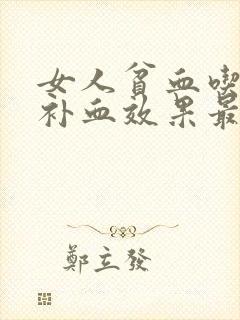 女人贫血喫
补血效果最
鄭立發